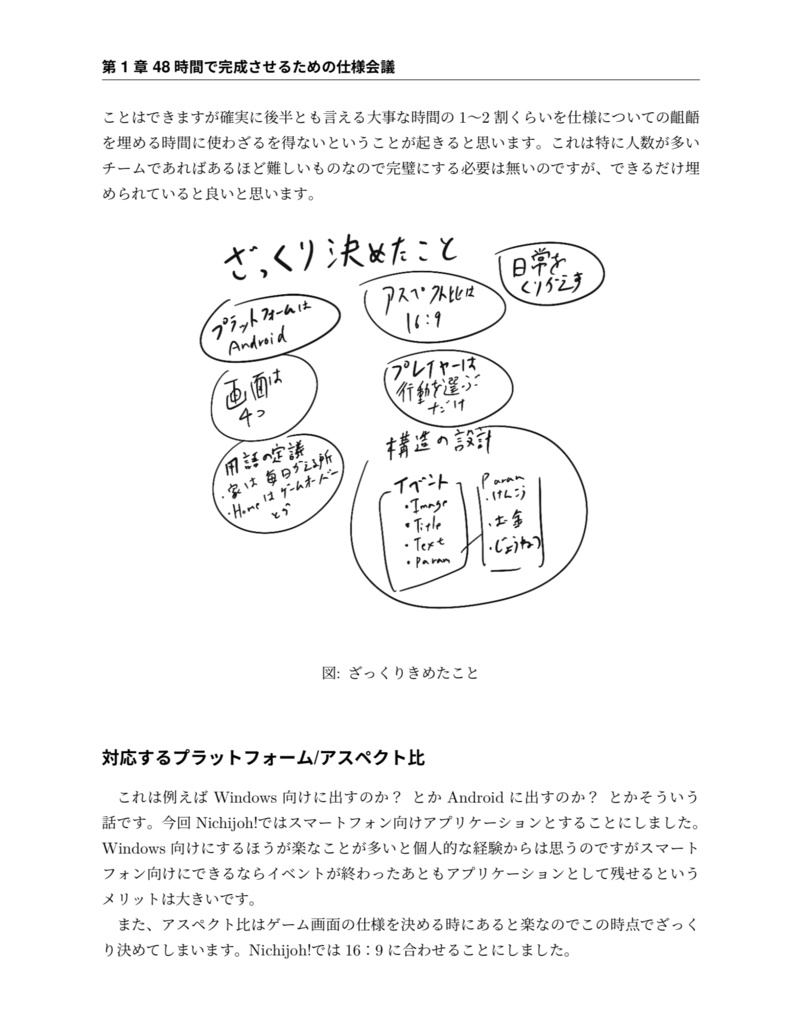 第 1 章 48 時間で完成させるための仕様会議
ことはできますが確実に後半とも言える大事な時間の 1〜2 割くらいを仕様についての齟齬
を埋める時間に使わざるを得ないということが起きると思います。これは特に人数が多い
チームであればあるほど難しいものなので完璧にする必要は無いのですが、できるだけ埋
められていると良いと思います。
ざっくり決めたこと
日常を
くりかえす
プラットフォームは
Android
アスペクト比は
16:9
画面は
4つ
プレイヤーは
行動を選ぶ
だけ
用語の定議
・家は毎日かえる所
・Homeはゲームオーバー
とか
構造の設計
イベント
・Image
・Title
・Text
・Param
Param
・けんこう
・お金
・じょうねつ
図: ざっくりきめたこと
対応するプラットフォーム/アスペクト比
これは例えば Windows 向けに出すのか？ とか Android に出すのか？ とかそういう
話です。今回 Nichijoh!ではスマートフォン向けアプリケーションとすることにしました。
Windows 向けにするほうが楽なことが多いと個人的な経験からは思うのですがスマート
フォン向けにできるならイベントが終わったあともアプリケーションとして残せるという
メリットは大きいです。
また、アスペクト比はゲーム画面の仕様を決める時にあると楽なのでこの時点でざっく
り決めてしまいます。Nichijoh!では 16：9 に合わせることにしました。